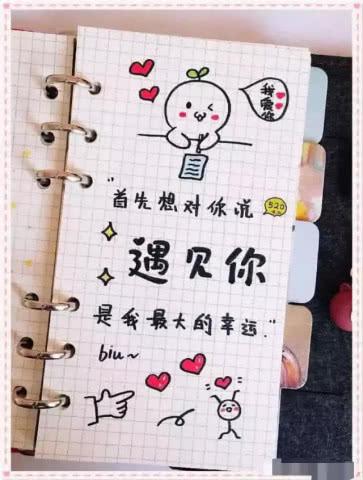 我爱你
"首先想对你说
520
遇见你
是我最大的幸运"
biu~